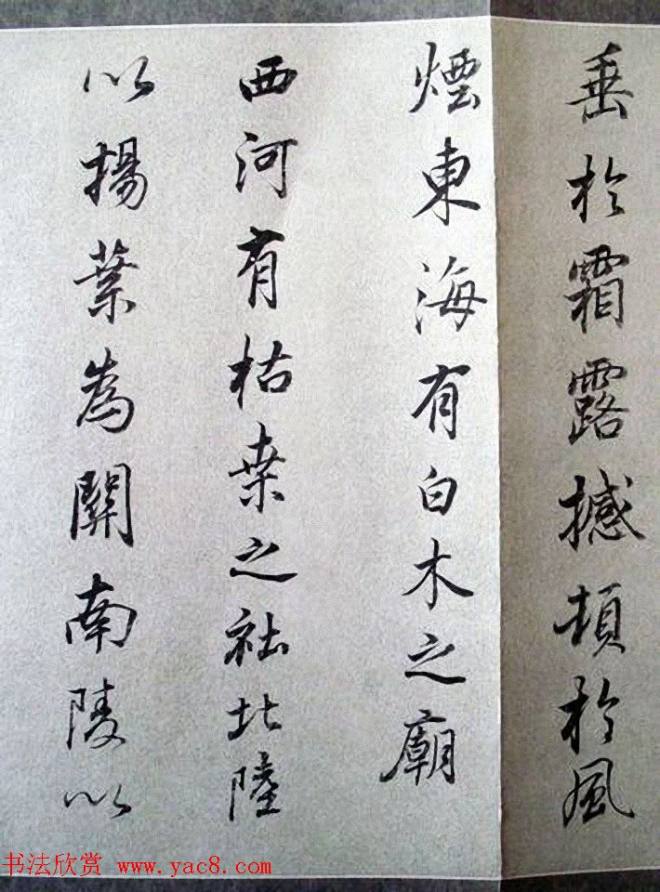 垂於霜露撼頓於風
煙東海有白木之廟
西河有枯桒之社北陸
以揚葉為關南陵以
书法欣赏 www.yac8.com